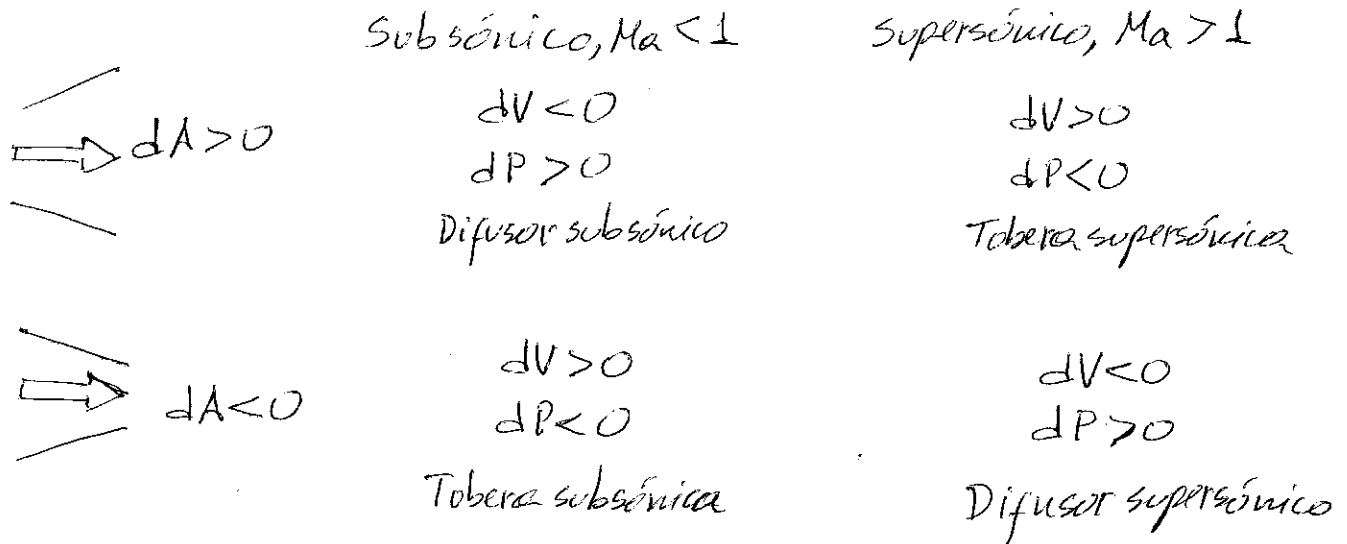 Subsónico, Ma < 1
Supersónico, Ma > 1
dA>0
dV<0
dP>0
Difusor subsónico
dV>0
dP<0
Tobera supersónica
dA<0
dV>0
dP<0
Tobera subsónica
dV<0
dP>0
Difusor supersónico